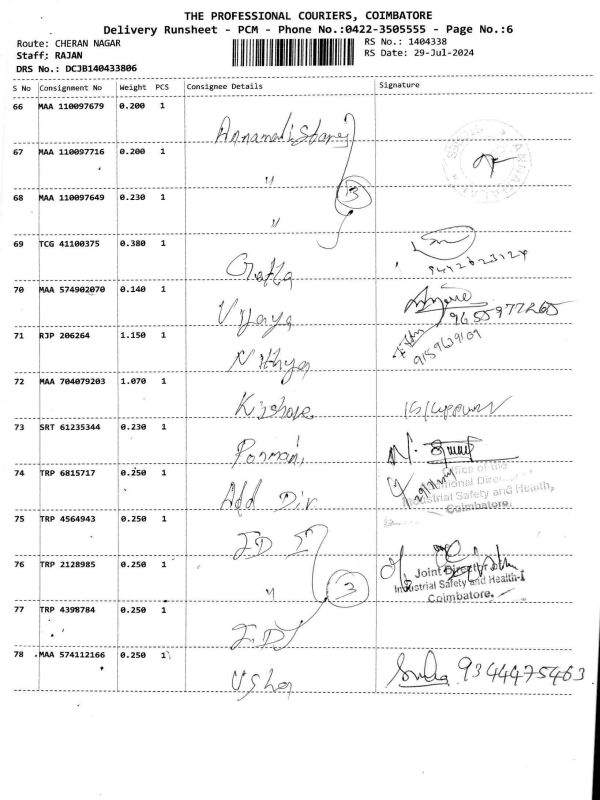 THE PROFESSIONAL COURIERS, COIMBATORE
Delivery Runsheet - PCM - Phone No.:0422-3505555 - Page No.:6
Route: CHERAN NAGAR
RS No.: 1404338
Staff: RAJAN
RS Date: 29-Jul-2024
DRS No.: DCJB140433806
S No Consignment No Weight PCS Consignee Details Signature
66 MAA 110097679 0.200 1
67 MAA 110097716 0.200 1
"
3
68 MAA 110097649 0.230 1
"
69 TCG 41100375 0.380 1
Geetha
70 MAA 574902070 0.140 1
Vijaya
9655977265
71 RJP 206264 1.150 1
Nithya
9159639109
72 MAA 704079203 1.070 1
Kishore
73 SRT 61235344 0.230 1
74 TRP 6815717 0.250 1
Add Dir
Office of the
Industrial Safety and Health,
Coimbatore.
75 TRP 4564943 0.250 1
JD I
76 TRP 2128985 0.250 1
"
3
Joint Director of
Industrial Safety and Health-I
Coimbatore.
77 TRP 4398784 0.250 1
JD I
78 MAA 574112166 0.250 1
Usha
9344475463